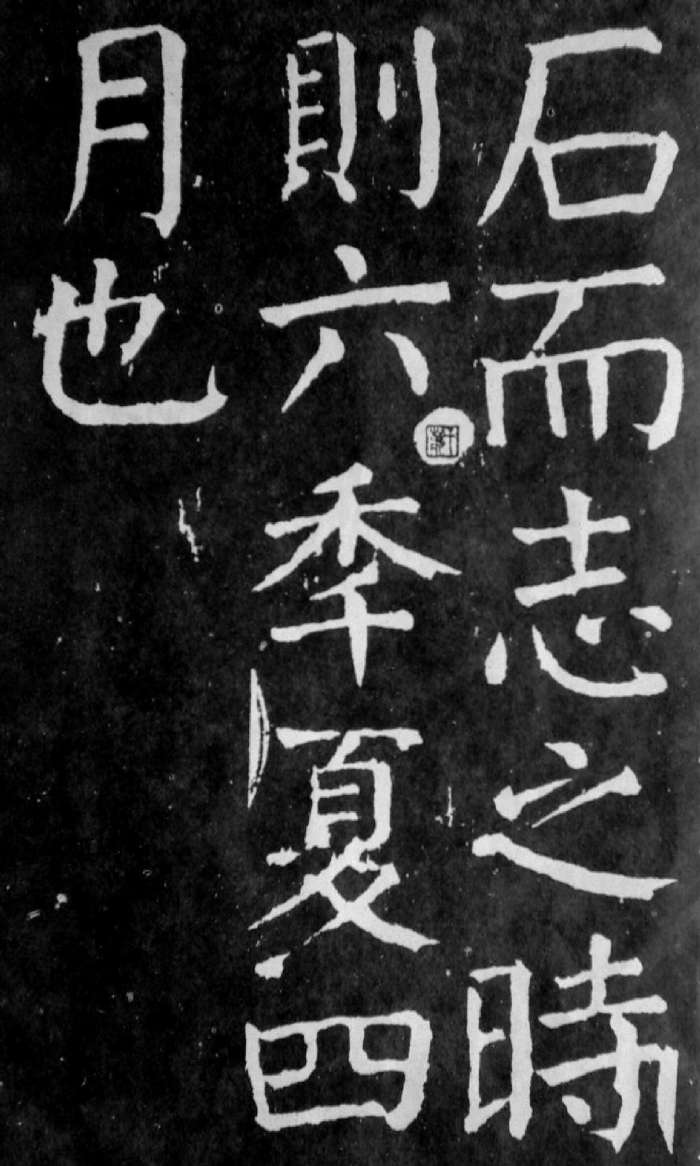 石而志之時
則六秊夏四
月也